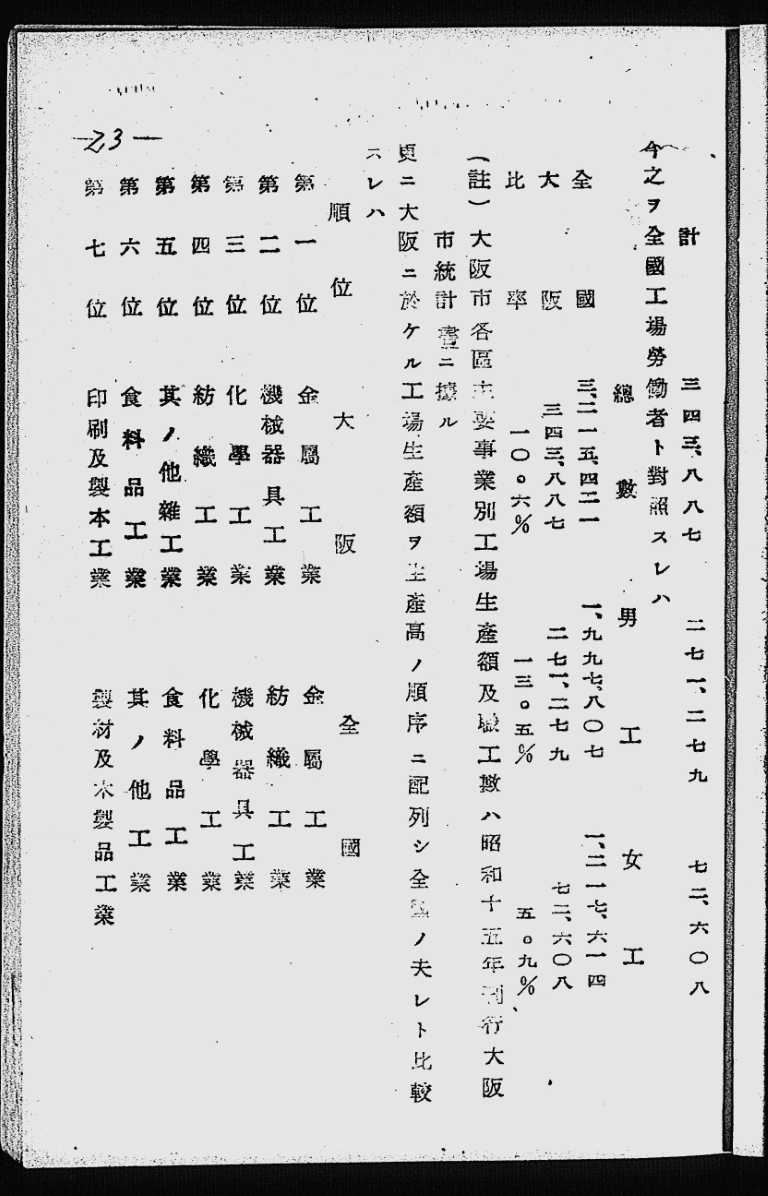 計　三四三、八八七　二七一、二七九　七二、六〇八
今之ヲ全國工場勞働者ト對照スレハ
總數　男工　女工
全國　三、二一五、四二一　一、九九七、八〇七　一、二一七、六一四
大阪　三四三、八八七　二七一、二七九　七二、六〇八
比率　一〇。六％　一三。五％　五。九％
（註）大阪市各區主要事業別工場生産額及職工數ハ昭和十五年刊行大阪
市統計書ニ據ル
更ニ大阪ニ於ケル工場生産額ヲ生産高ノ順序ニ配列シ全國ノ夫レト比較
スレハ
順位　大阪　全國
第一位　金屬工業　金屬工業
第二位　機械器具工業　紡織工業
第三位　化學工業　機械器具工業
第四位　紡織工業　化學工業
第五位　其ノ他雜工業　食料品工業
第六位　食料品工業　其ノ他工業
第七位　印刷及製本工業　製材及木製品工業
—23—